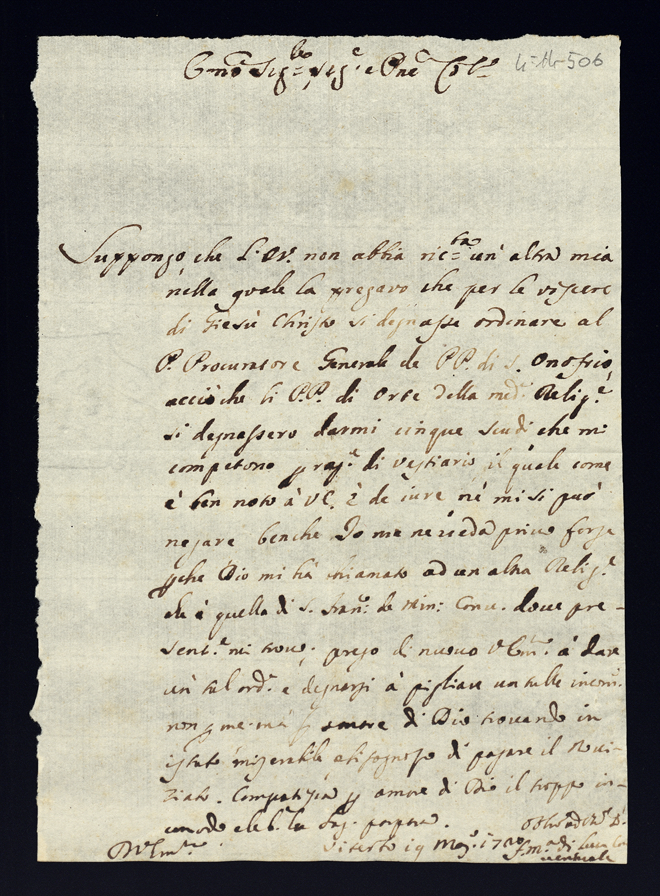 Em̃o Sig.re Sig.e e Pñe Col.mo
506
Suppongo che l'Ev. non abbia ric.ta un' altra mia
nella quale la pregavo che per le viscere
di Giesù Christo si degnasse ordinare al
P. Procuratore Generale de PP. di S. Onofrio,
acciò che li P.P. di Orte della med.a Relig.e
si degnassero darmi cinque scudi che mi
competono p rag.e di vestiario, il quale come
è ben noto à VE. è de iure nè mi si può
negare benche Io me ne sieda privo forze
pche Dio mi hà chiamato ad un altra Relig.e
che è quella di S. Fran.o de Min: Conv. dove pre-
sent.e mi trovo. prego di nuovo V. Em.a à dare
un tal ord.e e degnarsi à pigliare un talle incom.
non p me mà p amore di Dio trovando in
istato miserabile e bisognoso di pagare il Novi-
ziato. Compatisca p amore di Dio il troppo in-
comodo e le b.
Viterbo 19 Mag.o
D V Em.za
F.